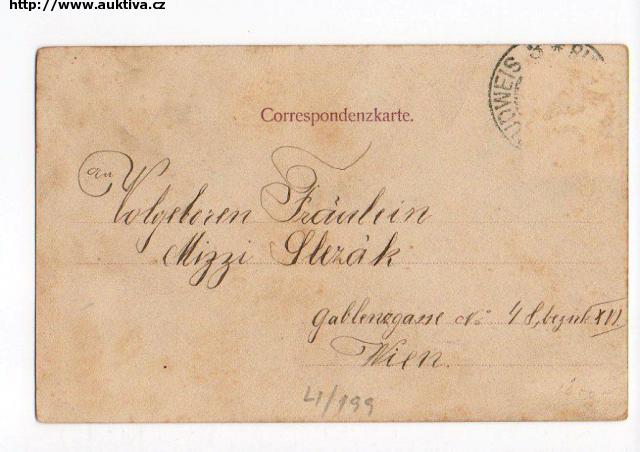 http://www.auktiva.cz
UDWEIS 3 * BU
Correspondenzkarte.
An
Wolgeboren Fräulein
Mizzi Slezák
Gablenzgasse No 48, bezirk XVI.
Wien.
LI/199